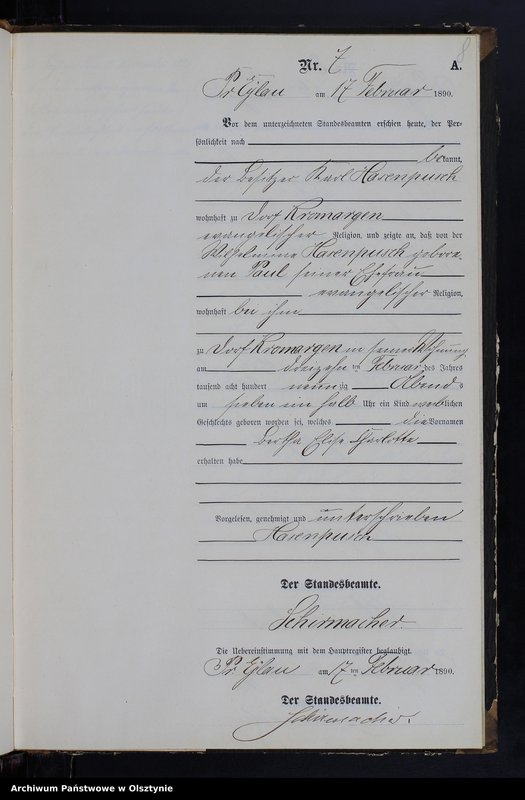 8
Nr. 7 A.
Pr Eylau am 17 Februar 1890.
Vor dem unterzeichneten Standesbeamten erschien heute, der Per-
sönlichkeit nach
bekannt,
der Besitzer Karl Hasenpusch
wohnhaft zu Dorf Kromargen
evangelischer Religion, und zeigte an, daß von der
Wilhelmine Hasenpusch gebore-
nen Paul seiner Ehefrau
evangelischer Religion,
wohnhaft bei ihm
zu Dorf Kromargen in seiner Wohnung
am dreizehn ten Februar des Jahres
tausend acht hundert neunzig Abends
um sieben ein halb Uhr ein Kind weiblichen
Geschlechts geboren worden sei, welches die Vornamen
Bertha Elise Charlotte
erhalten habe
Vorgelesen, genehmigt und unterschrieben
Hasenpusch
Der Standesbeamte.
Schirmacher.
Die Uebereinstimmung mit dem Hauptregister beglaubigt.
Pr. Eylau am 17 ten Februar 1890.
Der Standesbeamte.
Schirmacher.
Archiwum Państwowe w Olsztynie